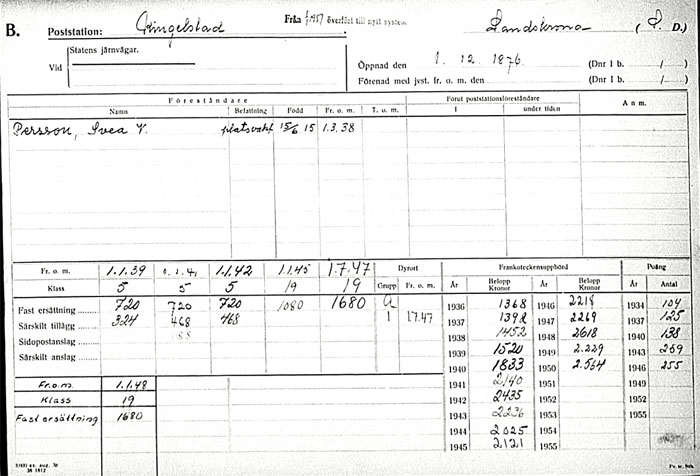 B. Poststation: Ringelstad Från 1/7 1957 överfört till nytt system Landskrona ( D.)
Statens järnvägar.
Vid Öppnad den 1. 12. 1876 (Dnr 1 b. / )
Förenad med jvst. fr. o. m. den (Dnr 1 b. / )
Föreståndare Förut poststationsföreståndare Anm.
Namn Befattning Född Fr. o. m. T. o. m. i under tiden
Persson, Svea V. platsvakt 15/6 15 1.3.38
Fr. o. m. 1.1.39 1.1.42 1.1.45 1.7.47 Dyrort Frankoteckensuppbörd Poäng
Klass 5 5 5 19 19 Grupp Fr. o. m. År Belopp Kronor År Belopp Kronor År Antal
Fast ersättning 720 720 720 1080 1680 a 1936 1368 1946 2218 1934 104
Särskilt tillägg 324 468 468 1 1.7.47 1937 1398 1947 2269 1937 125
Sidopostanslag 1938 1452 1948 2618 1940 138
Särskilt anslag 1939 1520 1949 2.229 1943 259
1940 1833 1950 2.564 1946 255
Fr.o.m. 1.1.48 1941 2140 1951 1949
Klass 19 1942 2435 1952 1952
Fast ersättning 1680 1943 2236 1953 1955
1944 2025 1954
1945 2121 1955